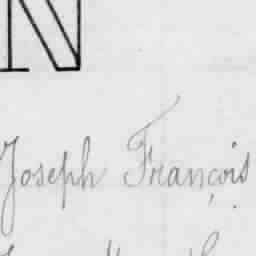 N
Joseph François